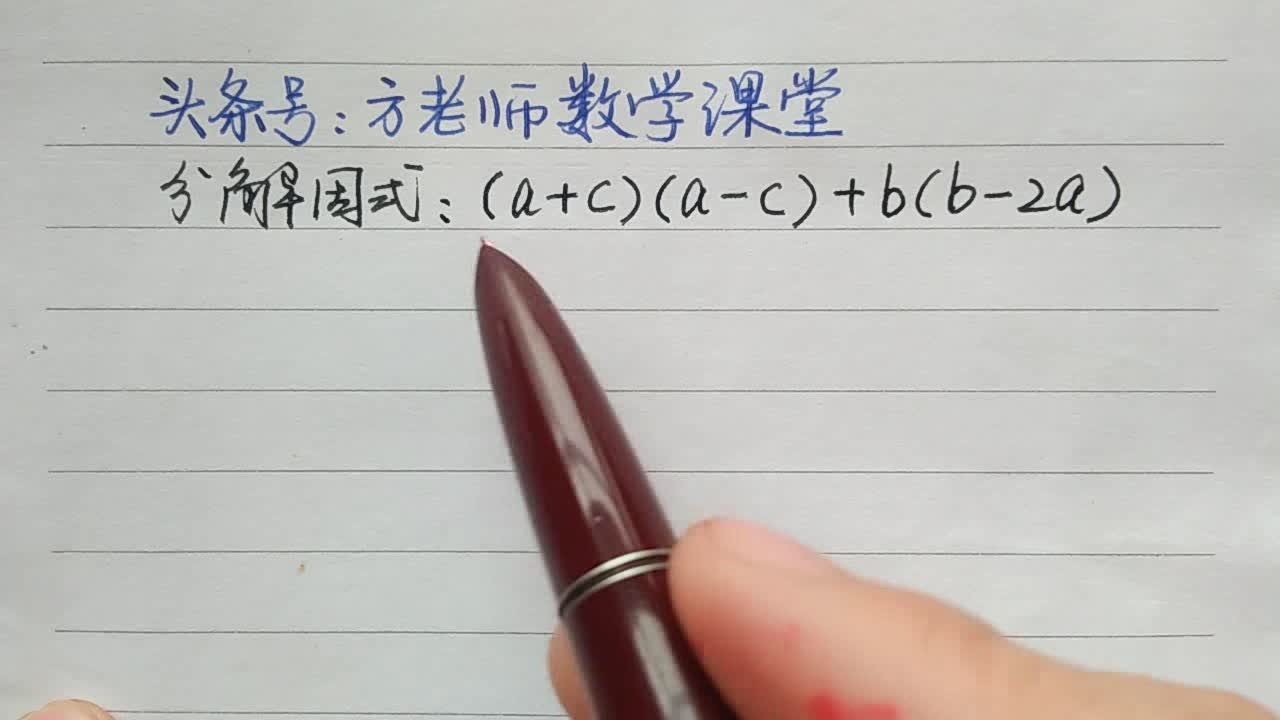 头条号:方老师数学课堂
分解因式:(a+c)(a-c)+b(b-2a)